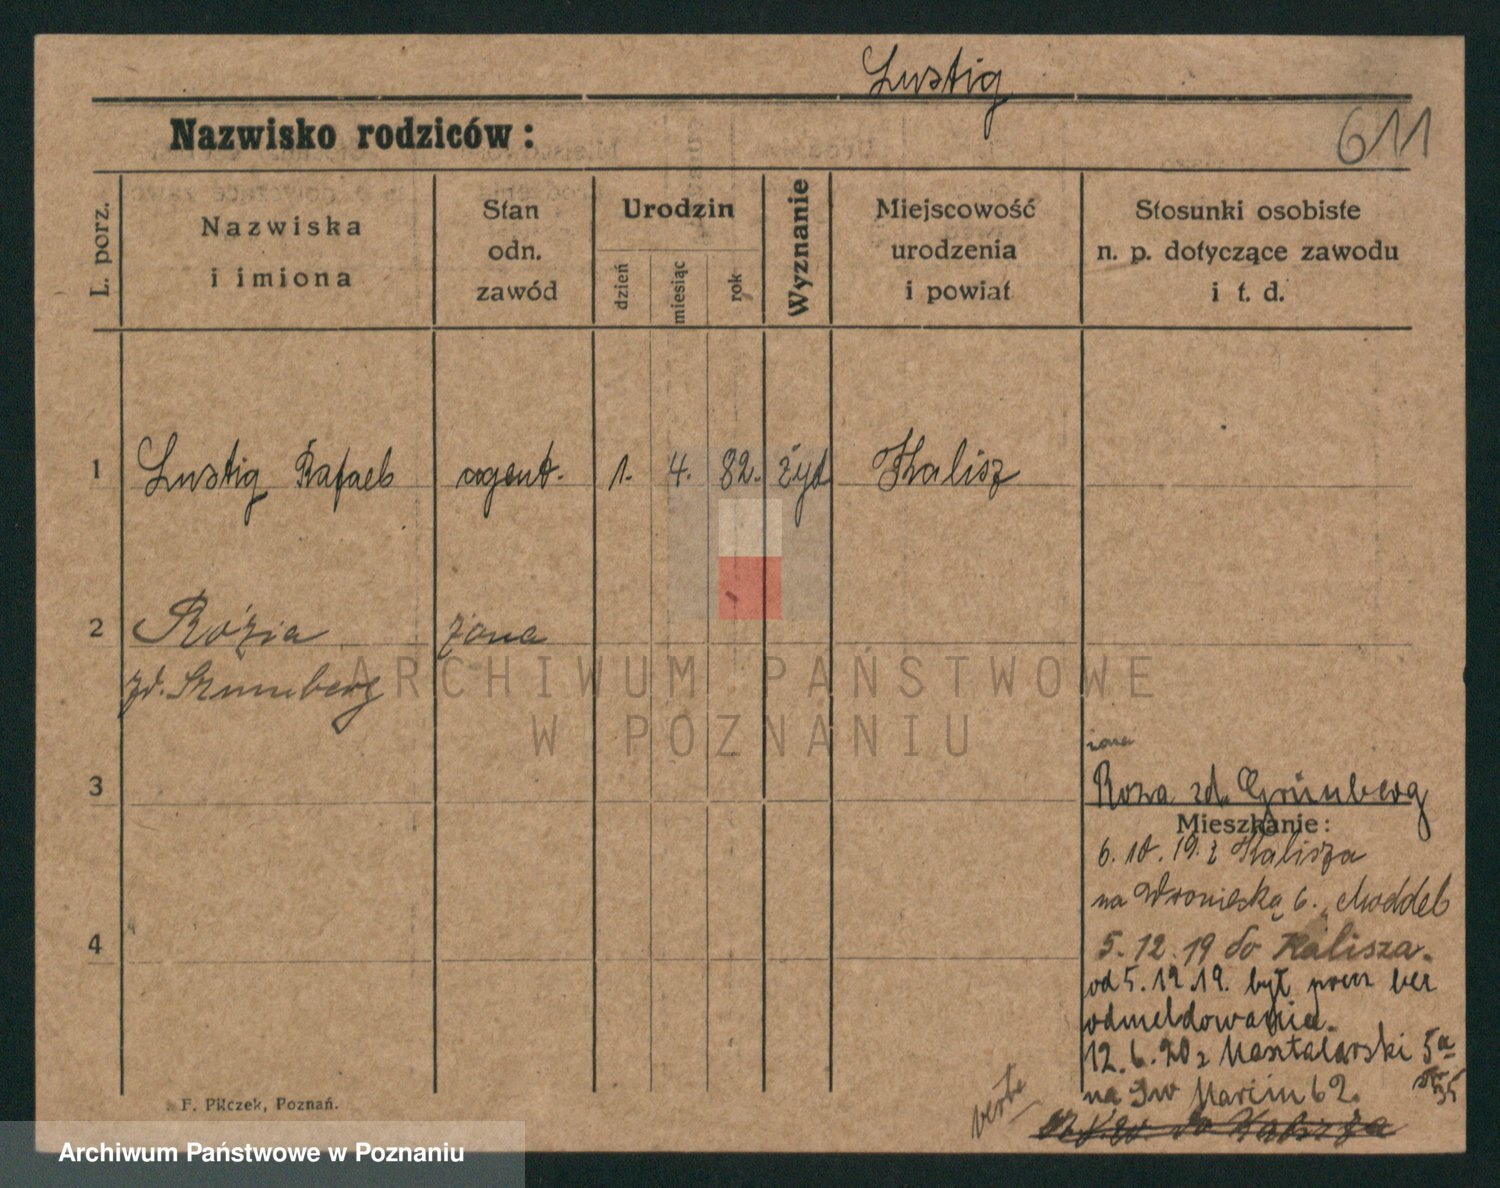 Lustig
Nazwisko rodziców:
611
L. porz.
Nazwiska
i imiona
Stan
odn.
zawód
Urodzin
dzień
miesiąc
rok
Wyznanie
Miejscowość
urodzenia
i powiat
Stosunki osobiste
n. p. dotyczące zawodu
i t. d.
1 Lustig Rafael agent. 1. 4. 82. żyd Kalisz
2 Rózia żona
zd.
ARCHIWUM PAŃSTWOWE
W POZNANIU
żona
3
Roza zd. Grünberg
Mieszkanie:
6. 10. 19. z Kalisza
na Wroniecką 6.
4
5. 12. 19 do Kalisza.
od 5. 12. 19. był precz bez
odmeldowania.
12. 6. 20 z Masztalarski 5a
na Św Marcin 62.
do Kalisza
F. Pilczek, Poznań.
Archiwum Państwowe w Poznaniu